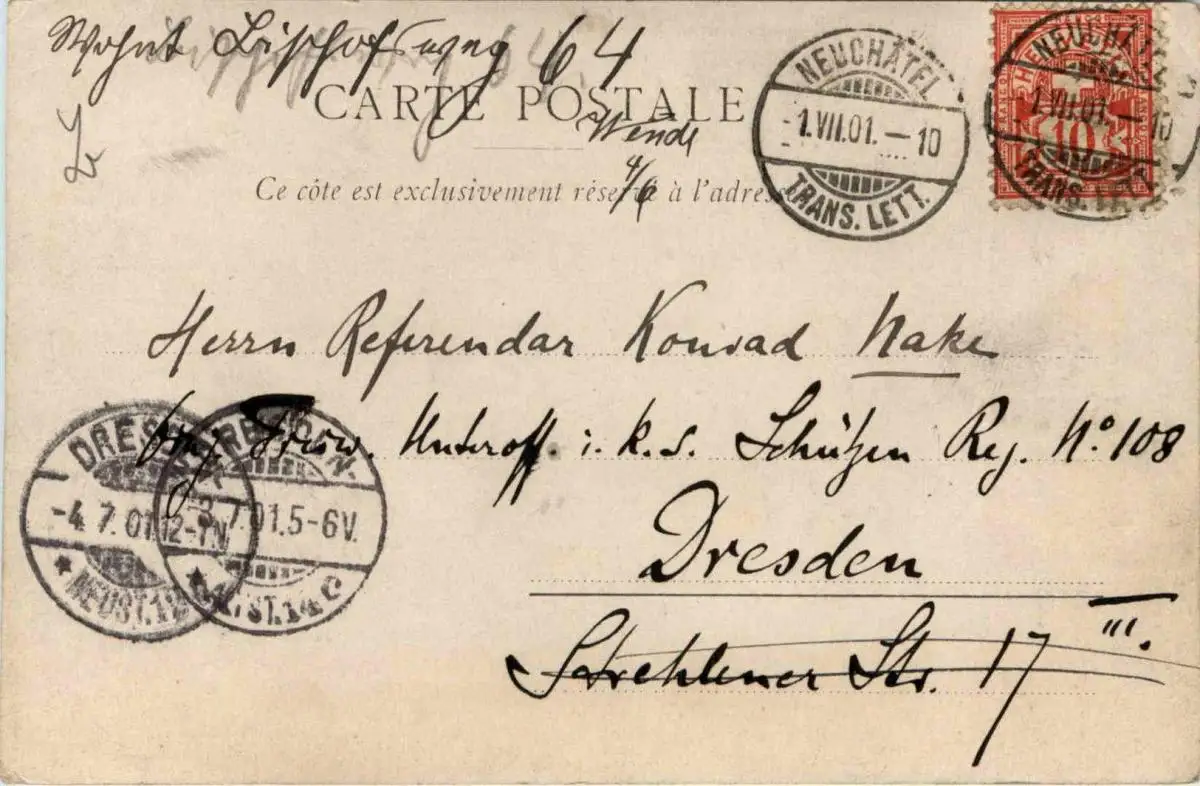 Wohnt Bischofsweg 64
CARTE POSTALE
Wende
4/6
Ce côte est exclusivement réservé à l'adresse
NEUCHÂTEL
-1.VII.01.-10
TRANS. LETT.
NEUCHÂTEL
-1.VII.01.-10
TRANS. LETT.
FRANCO
HELVETIA
10
Herrn Referendar Konrad Nake
Unteroff. i. k. s. Schützen Reg. No. 108
Dresden
Strehlener Str. 17 III.
DRESDEN
-4.7.01.12-1N.
* NEUST. 12
DRESDEN-
-3.7.01.5-6V.
* ALTST. 14 c